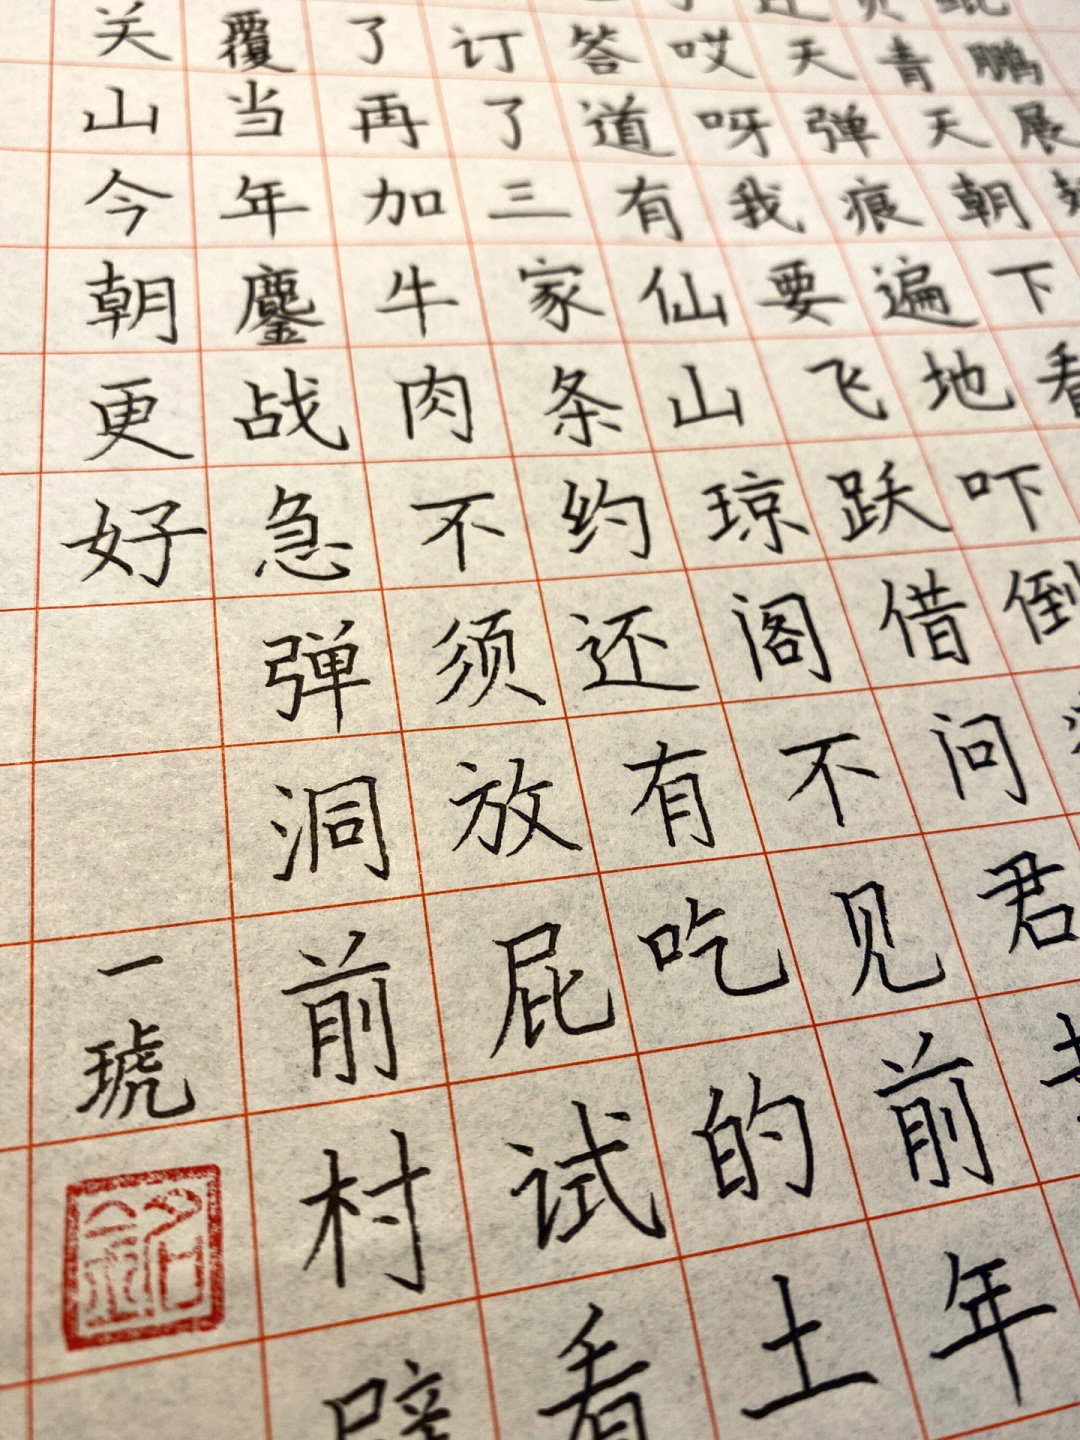 鲲鹏展
负青天朝下看
连天弹痕遍地吓倒
了哎呀我要飞跃借问君
答道有仙山琼阁不见前年
订了三家条约还有吃的土
了再加牛肉不须放屁试看
覆当年鏖战急弹洞前村壁
关山今朝更好
一琥
銘